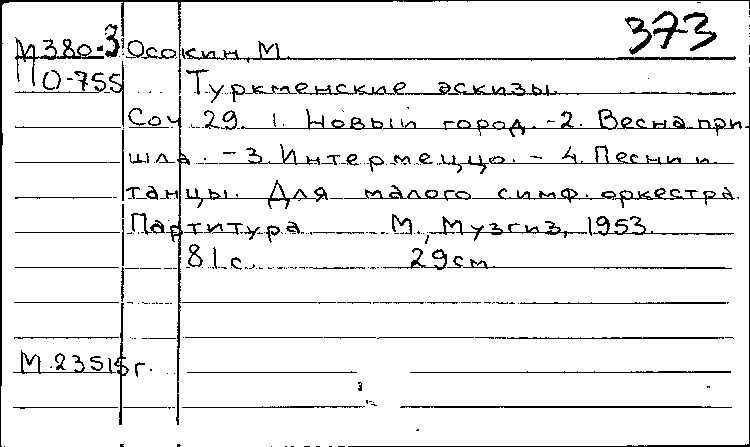 373
М380-3 Осокин, М.
О-755 Туркменские эскизы
Соч 29. 1. Новый город. - 2. Весна при
шла. - 3. Интермеццо. - 4. Песни и
танцы. Для малого симф. оркестра.
Партитура М., Музгиз, 1953.
81с. 29см
М.23515г.